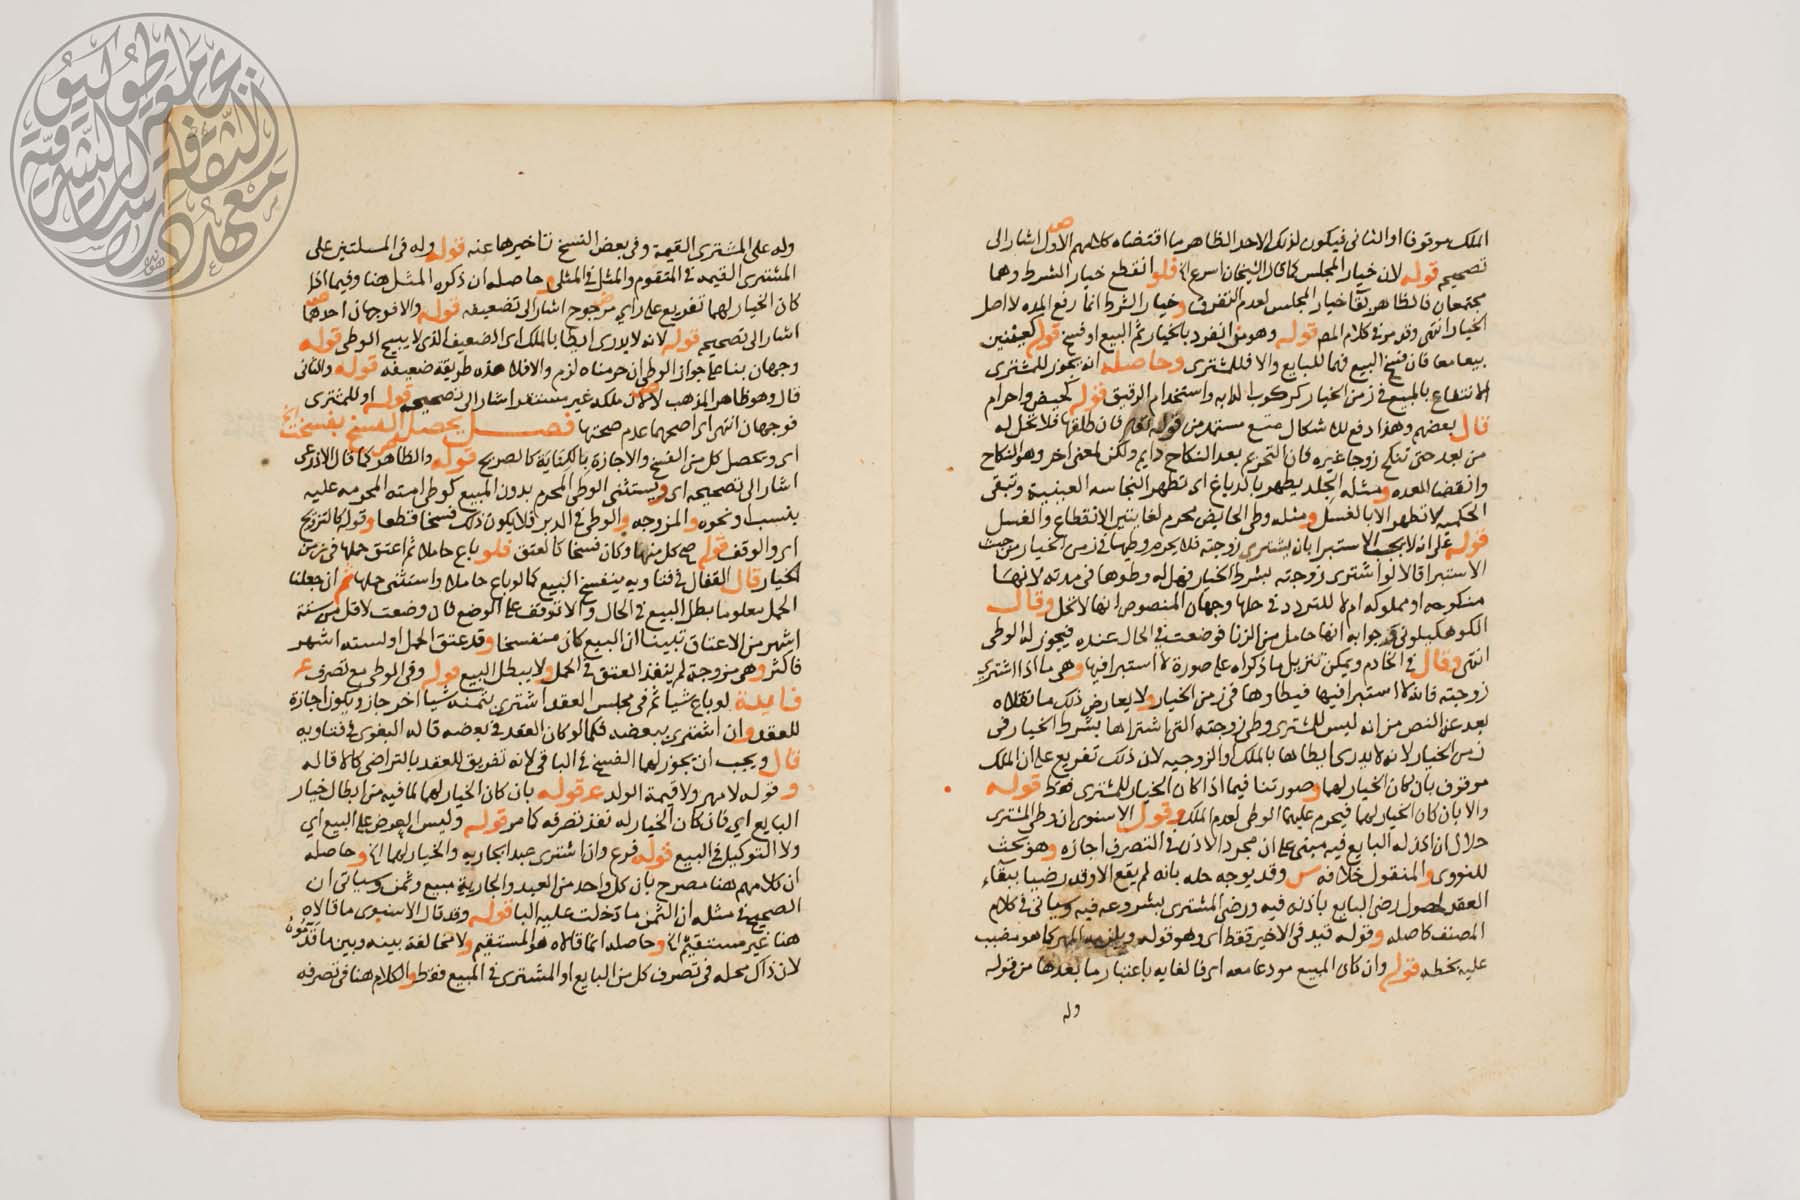 الملك موقوفا او الثاني فيكون لذلك الاحد الظاهر ما اقتضاه كلامهم الاول اشار الى
تصحيحه قوله لان خيار المجلس كما قال الشيخان اسرع الخ فلو انقطع خيار الشرط وهما
مجتمعان فالظاهر بقا خيار المجلس لعدم التفرق وخيار الشرط انما رفع المده لا اصل
الخيار انتهى وقد مر في كلام المص قوله وهو من انفرد بالخيار تم البيع او فسخ قوله كعينين
بيعا معا فان فسخ البيع فهما للبايع والا فللمشترى وحاصله انه يجوز للمشترى
الانتفاع بالمبيع في زمن الخيار كركوب الدابه واستخدام الرقيق قوله كحيض واحرام
قال بعضهم وهذا دفع للاشكال مستمد من قوله تعالى فان طلقها فلا تحل له
من بعد حتى تنكح زوجا غيره فان التحريم بعد النكاح دايم ولكن لمعنى اخر وهو النكاح
وانقضا العده ومثله الجلد يطهر بالدباغ اى تطهر النجاسه العينية وتبقى
الحكميه لا تطهر الا بالغسل ومثله وطى الحايض محرم لغايتين الانقطاع والغسل
قوله على انه لا يجب الاستبرا بان يشترى زوجته فلا يحرم وطيها في زمن الخيار من حيث
الاستبرا قالا لو اشترى زوجته بشرط الخيار فهل له وطوها في مدته لانها
منكوحه او مملوكه ام لا للتردد في حلها وجهان المنصوص انها لا تحل وقال
الكوهكيلونى جوابه انها حامل من الزنا فوضعت في الحال عنده فيجوز له الوطى
انتهى وقال في الخادم ويمكن تنزيل ما ذكراه على صورة لا استبرا فيها وهى ما اذا اشترى
زوجته فانه لا استبرا فيها فيطاوها في زمن الخيار ولا يعارض ذلك ما نقلاه
بعد عن النص من انه ليس للمشترى وطى زوجته التى اشتراها بشرط الخيار فى
زمن الخيار لانه لا يدرى ايطاها بالملك او الزوجيه لان ذلك تفريع على ان الملك
موقوف بان كان الخيار لهما وصورتنا فيما اذا كان الخيار للمشترى فقط قوله
والا بان كان الخيار لهما فيحرم عليهما الوطى لعدم الملك وقول الاسنوى ان وطى المشترى
حلال ان اذن له البايع فيه مبنى على ان مجرد الاذن في التصرف اجازه وهو بحث
للنووى والمنقول خلافه س وقد يوجه حله بانه لم يقع الا وقد رضيا ببقاء
العقد لحصول رضى البايع باذنه فيه ورضى المشترى بشروعه فيه وسياتى في كلام
المصنف كاصله وقوله قيد فى الاخير فقط اى وهو قوله ويلزمه المهر كما هو مضبب
عليه بخطه قوله وان كان المبيع مودعا معه اى فالغايه باعتبار ما بعدها من قوله
وله
وله على المشترى القيمة وفى بعض النسخ تاخيرها عنه قوله وله فى المسلتين على
المشترى القيمه في المتقوم والمثل في المثلى وحاصله ان ذكره المثل هنا وفيما اذا
كان الخيار لهما تفريع على راي مرجوح اشار الى تضعيفه قوله والا فوجهان احدهما
اشار الى تصحيحه قوله لانه لا يدرى ايطا بالملك اى الضعيف الذى لا يبيح الوطى قوله
وجهان بنا على جواز الوطى ان حرمناه لزم والا فلا هذه طريقة ضعيفه قوله والثانى
قال وهو ظاهر المذهب لا لان ملكه غير مستقر اشار الى تصحيحه قوله او للمشترى
فوجهان انتهى اى اصحهما عدم صحتها فصل يحصل الفسخ بفسخت الخ
اى ويحصل كل من الفسخ والاجازة بالكناية كالصريح قوله والظاهر كما قال الاذرعى
اشار الى تصحيحه اى ويستثنى الوطى المحرم بدون المبيع كوطى امته المحرمه عليه
بنسب او نحوه والمزوجه والوطى في الدبر فلا يكون ذلك فسخا قطعا وقوله كالتزويج
اى والوقف قوله صح كل منهما وكان فسخا كالعتق فلو باع حاملا ثم اعتق حملها في زمن
الخيار قال القفال في فتاويه ينفسخ البيع كما لو باع حاملا واستثنى حملها ثم ان جعلنا
الحمل معلوما بطل البيع في الحال والا توقف على الوضع فان وضعت لاقل من ستة
اشهر من الاعتاق تبينا ان البيع كان منفسخا وقد عتق الحمل او لسته اشهر
فاكثر وهى مزوجة لم ينفذ العتق في الحمل ولا يبطل البيع قوله وفى الوطى مع تصرف ع
فايدة لو باع شيا ثم في مجلس العقد اشترى بثمنه شيا اخر جاز ويكون اجازة
للعقد وان اشترى ببعضه فكما لو كان العقد في بعضه قاله البغوى في فتاويه
قال ويجب ان يجوز لهما الفسخ في الباقى لانه تفريق للعقد بالتراضى كالاقاله
وقوله لا مهر ولا قيمة الولد ع قوله بان كان الخيار لهما لما فيه من ابطال خيار
البايع اي فان كان الخيار له نفذ تصرفه كما مر قوله وليس العرض على البيع اي
ولا التوكيل في البيع قوله فرع وان اشترى عبدا بجاريه والخيار لهما الخ وحاصله
ان كلامهم هنا مصرح بان كل واحد من العبد والجارية مبيع وثمن وسياتى ان
الصحيح في مثله ان الثمن ما دخلت عليه البا قوله وقد قال الاسنوى ما قالاه
هنا غير مستقيم الخ وحاصله انما قالاه هو المستقيم ولا مخالفة بينه وبين ما قدموه
لان ذاك محله في تصرف كل من البايع او المشترى في المبيع فقط والكلام هنا في تصرفه